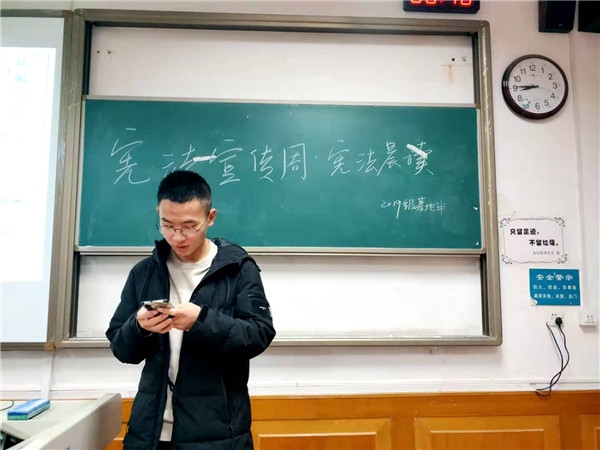 宪法宣传周·宪法晨读
2019级基地班
只留足迹,
不留垃圾。
安全警示